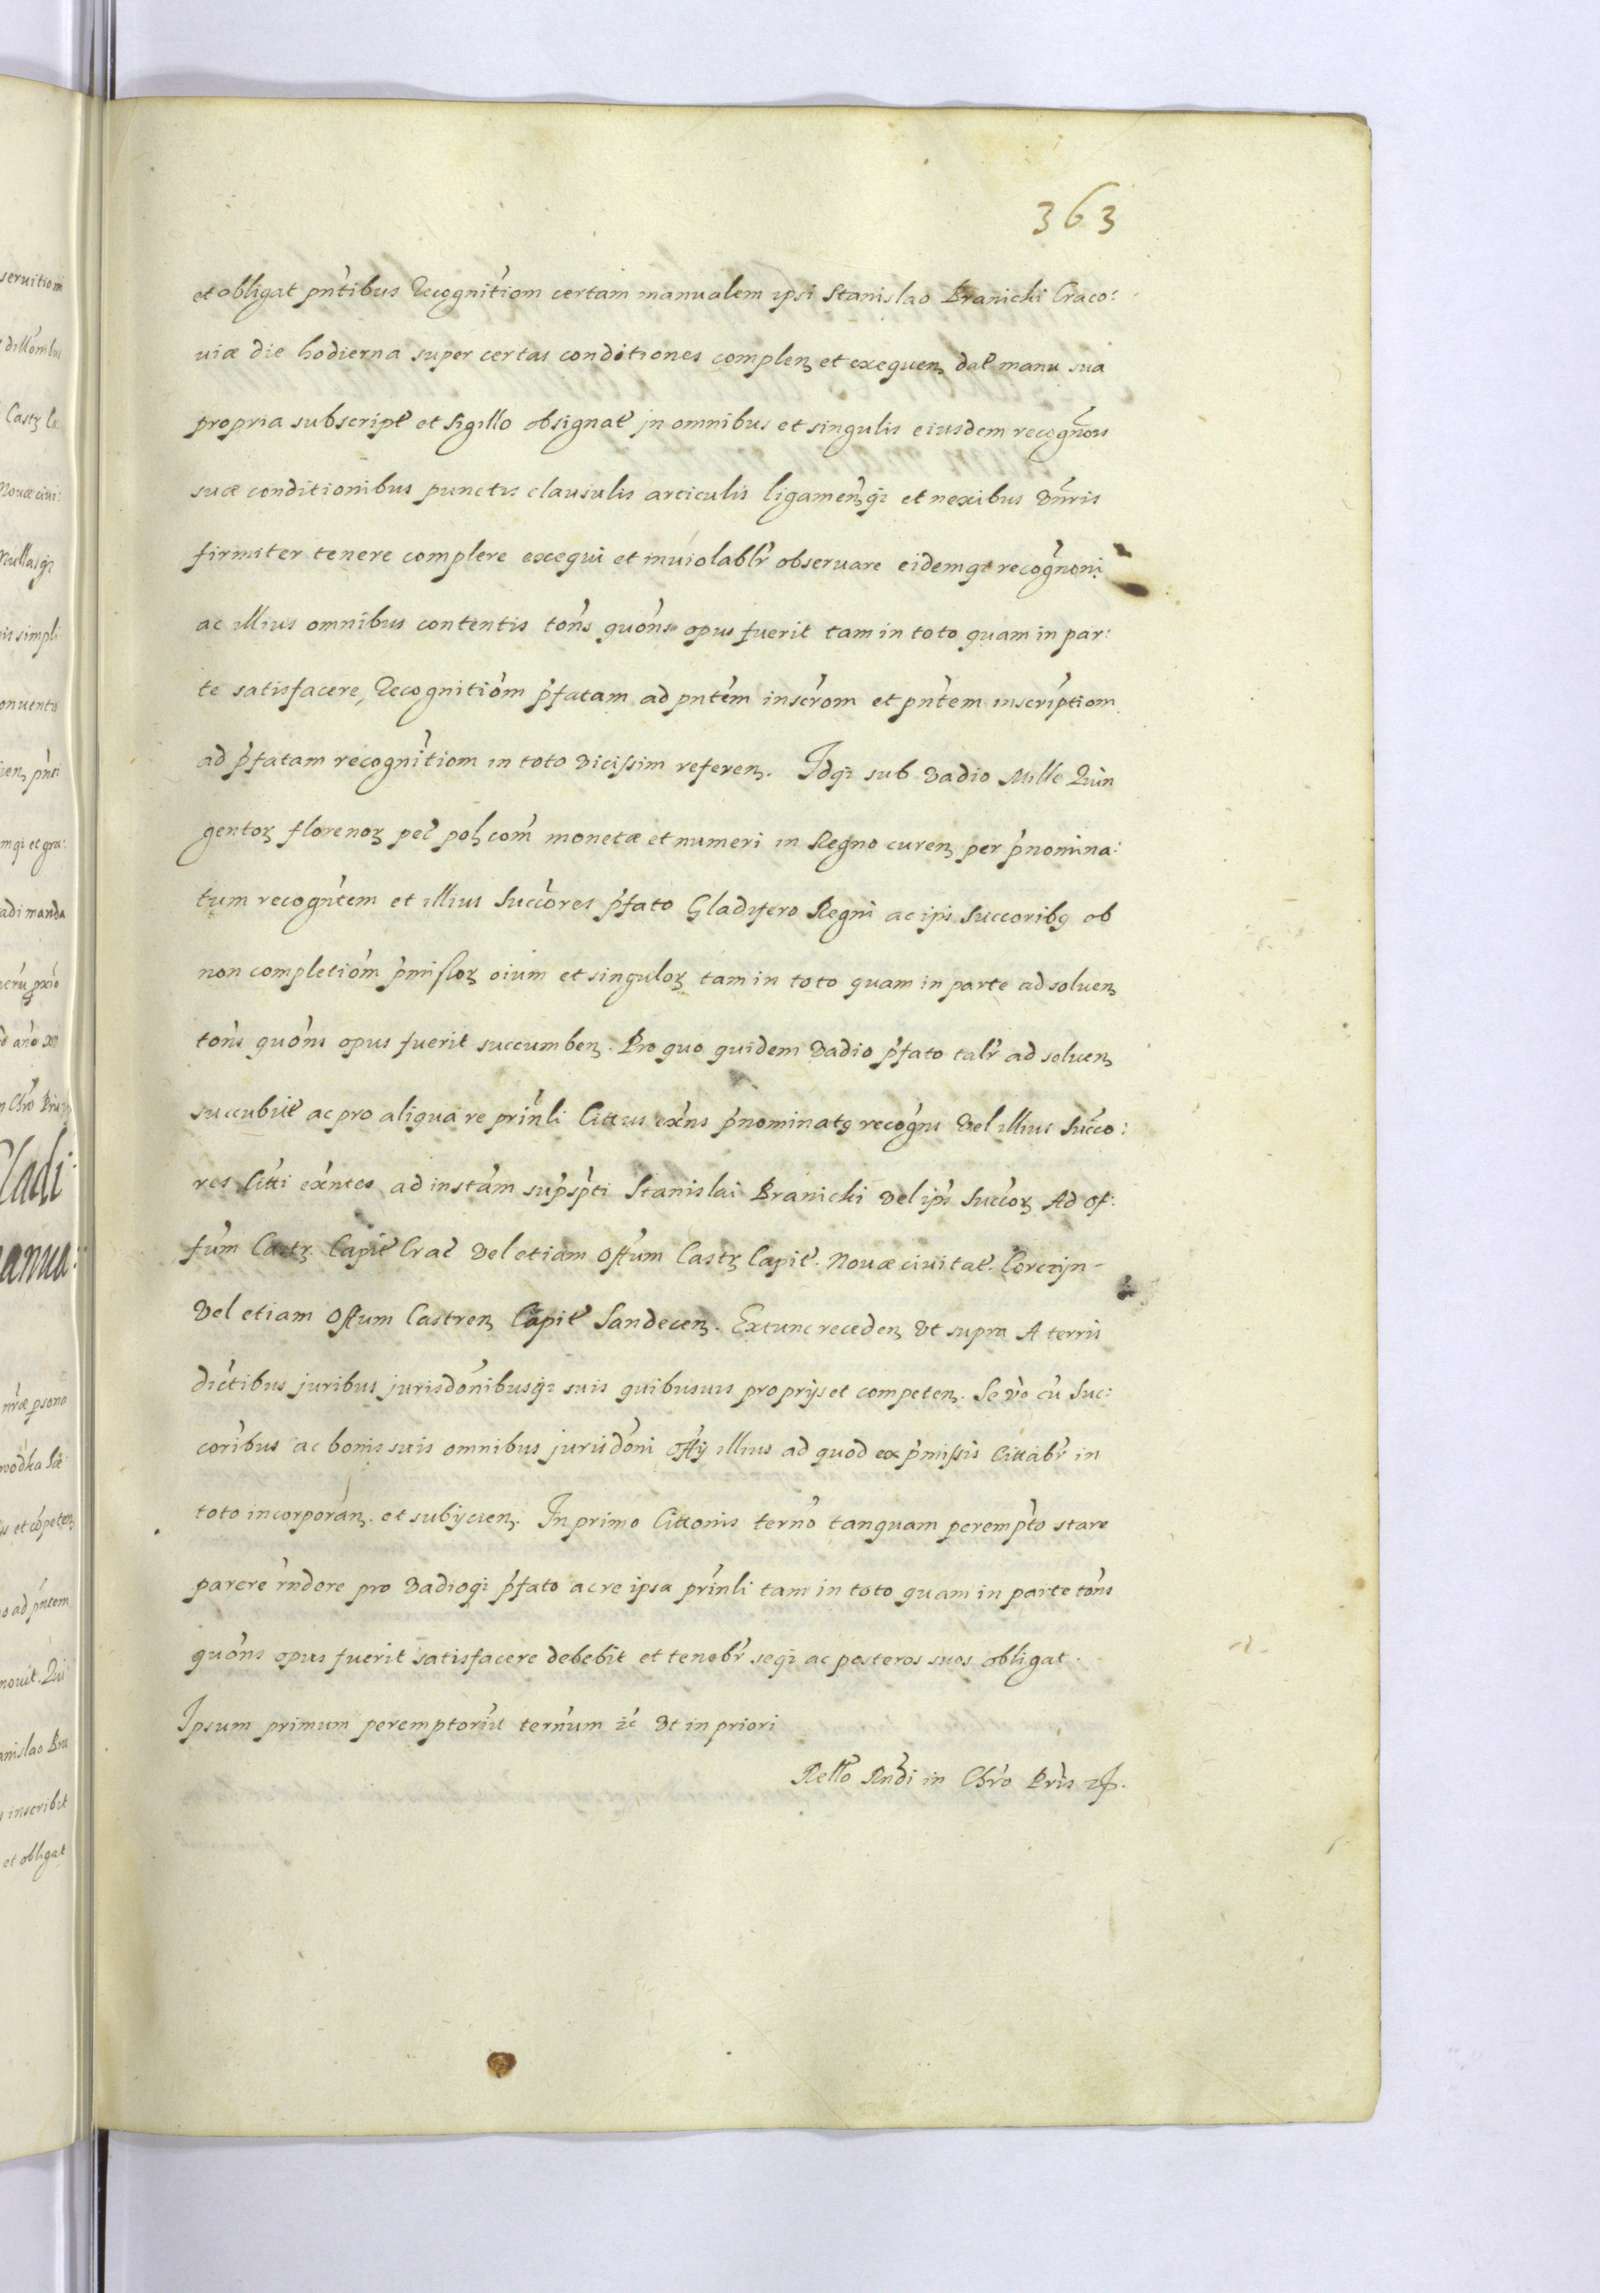 363
et obligat pñtibus Recognitiom certam manualem ipsi Stanislao Branicki Craco:
uiæ die hodierna super certas conditiones complenꝫ et exequenꝫ dat manu sua
propria subscript et sigillo obsignat jn omnibus et singulis eiusdem recognois
suæ conditionibus punctis clausulis articulis ligamenꝫqꝫ et nexibus vniuris
firmiter tenere complere exequi et inuiolablr obseruare eidemqꝫ recognoni
ac illius omnibus contentis tons quons opus fuerit tam in toto quam in par:
te satisfacere, Recognitiom pfatam ad pntem inscrom et pntem inscriptiom
ad pfatam recognitiom in toto vicissim referenꝫ. Idqꝫ sub vadio Mille Quin
gentoꝝ florenoꝝ pec polꝫ com monetæ et numeri in Regno curenꝫ per pnomina:
tum recogntem et illius succores pfato Gladifero Regni ac ips succoribꝫ ob
non completiom pmissoꝝ oium et singuloꝝ tam in toto quam in parte ad soluenꝫ
tons quons opus fuerit succumbenꝫ. Pro quo quidem vadio pfato talr ad soluenꝫ
succubit ac pro aliqua re prinli Cittus exns pnominatꝫ recogns vel illius Succo:
res Citti exntes ad instam supspti Stanislai Branicki vel ips succoꝝ Ad of:
fum Castꝝ Capit Crac vel etiam Offum Castꝝ Capit. Nouæ ciuitat. Corczyn-
vel etiam Offum Castrenꝫ Capit Sandecenꝫ. Extunc recedenꝫ vt supra A terris
dictibus juribus jurisdonibusqꝫ suis quibusuis proprijs et competenꝫ. Se vo cu Suc:
coribus ac bonis suis omnibus jurisdoni Offij illius ad quod ex pmissis Cittabr in
toto incorporanꝫ. et subijcienꝫ. In primo Cittonis terno tanquam perempto stare
parere rndere pro vadioqꝫ pfato ac re ipsa prinli tam in toto quam in parte tons
quons opus fuerit satisfacere debebit et tenebr seqꝫ ac posteros suos obligat.
Ipsum primum peremptoriu ternum zc vt in priori
Rello Rndi in Chro Pris